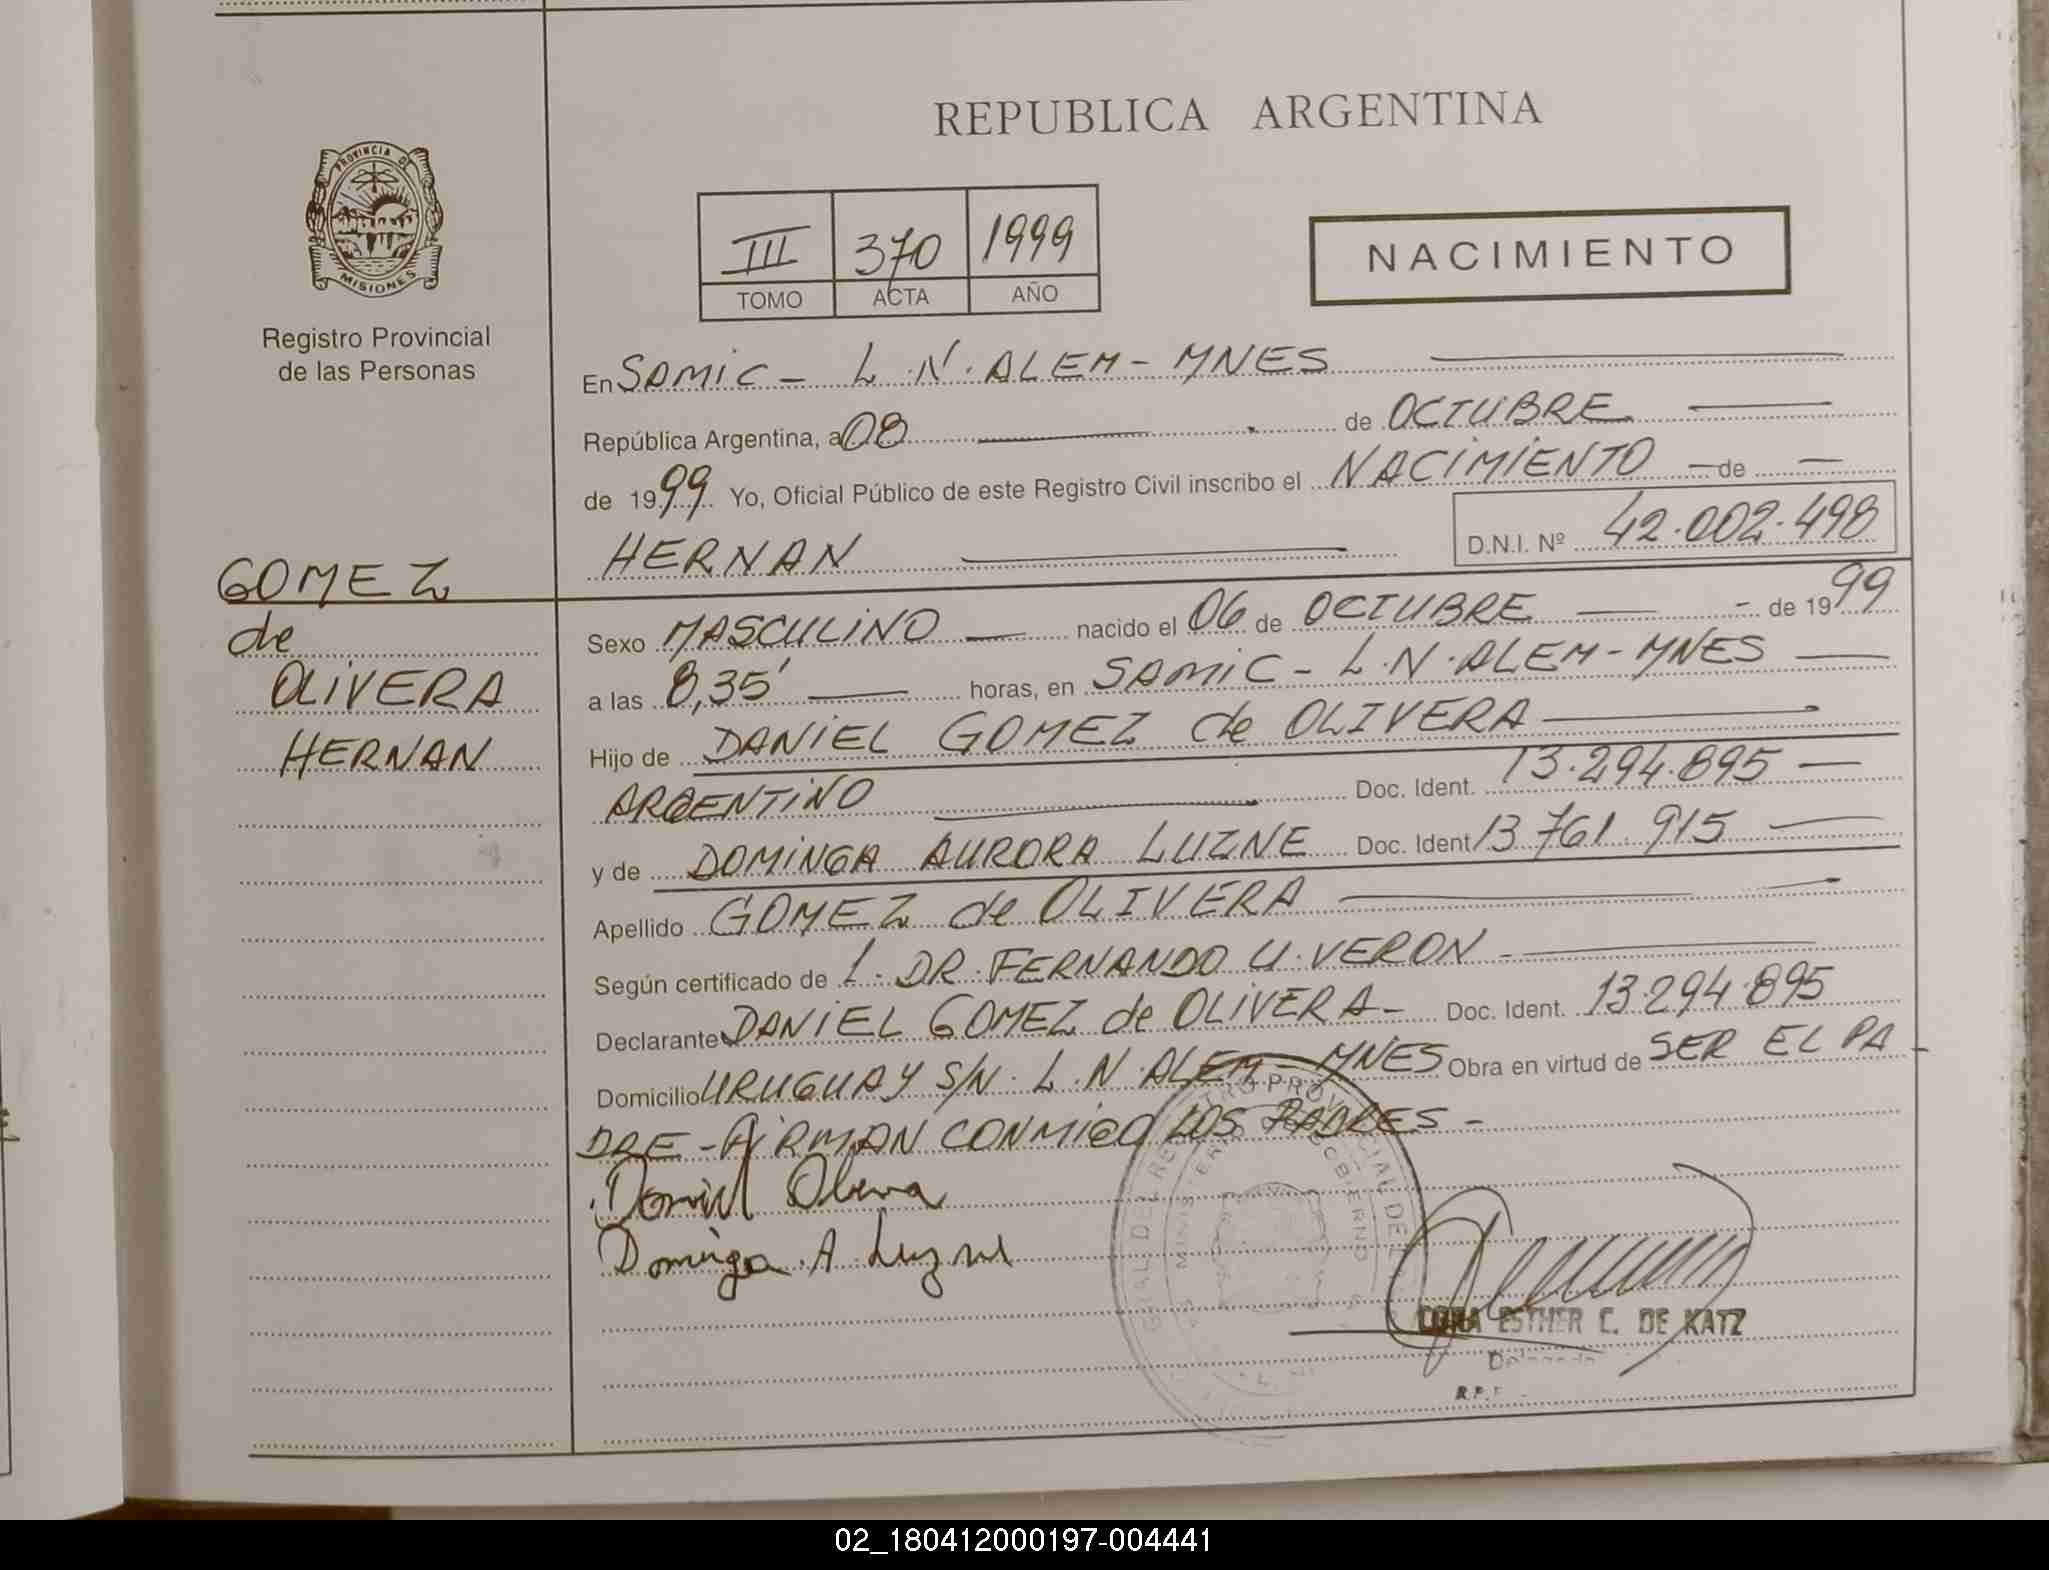 REPUBLICA ARGENTINA
PROVINCIA DE
MISIONES
Registro Provincial
de las Personas
III 370 1999
TOMO ACTA AÑO
NACIMIENTO
En SAMIC - L.N. ALEM - MNES
República Argentina, a 08 de OCTUBRE
de 1999 Yo, Oficial Público de este Registro Civil inscribo el NACIMIENTO - de -
HERNAN D.N.I. Nº 42.002.498
GOMEZ
de
OLIVERA
HERNAN
Sexo MASCULINO nacido el 06 de OCTUBRE - de 1999
a las 8,35' horas, en SAMIC - L.N. ALEM - MNES
Hijo de DANIEL GOMEZ de OLIVERA
ARGENTINO Doc. Ident. 13.294.895
y de DOMINGA AURORA LUZNE Doc. Ident 13.761.915
Apellido GOMEZ de OLIVERA
Según certificado de L. DR. FERNANDO U. VERON
Declarante DANIEL GOMEZ de OLIVERA - Doc. Ident. 13.294.895
Domicilio URUGUAY S/N. L.N. ALEM - MNES Obra en virtud de SER EL PA -
DRE - FIRMAN CONMIGO LOS PADRES -
Daniel Olivera
Dominga A Luzne
ESTHER C. DE KATZ
Delegada
02_180412000197-004441